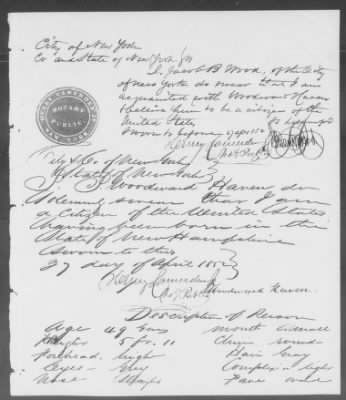 City of New York
Co and State of New York SS
I, Jacob B Wood, of the City
of New York do swear that I am
acquainted with Woodward Haven
& believe him to be a citizen of the
United States
Sworn to before
Henry Camerden
Not Public
NOTARY
PUBLIC
NEW-YORK
City & Co. of New York
State of New York
I Woodward Haven do
solemnly swear that I am
a Citizen of the United States
having been born in the
State of New Hampshire
Sworn to this
27 day of April 185
Henry Camerden Jr
Not Public
Woodward Haven
Description of Person
Age 49 Years
Mouth Small
Height 5 ft. 11
Chin round
Forehead. high
Hair Gray
Eyes Grey
Complexion light
Nose Straight
Face oval